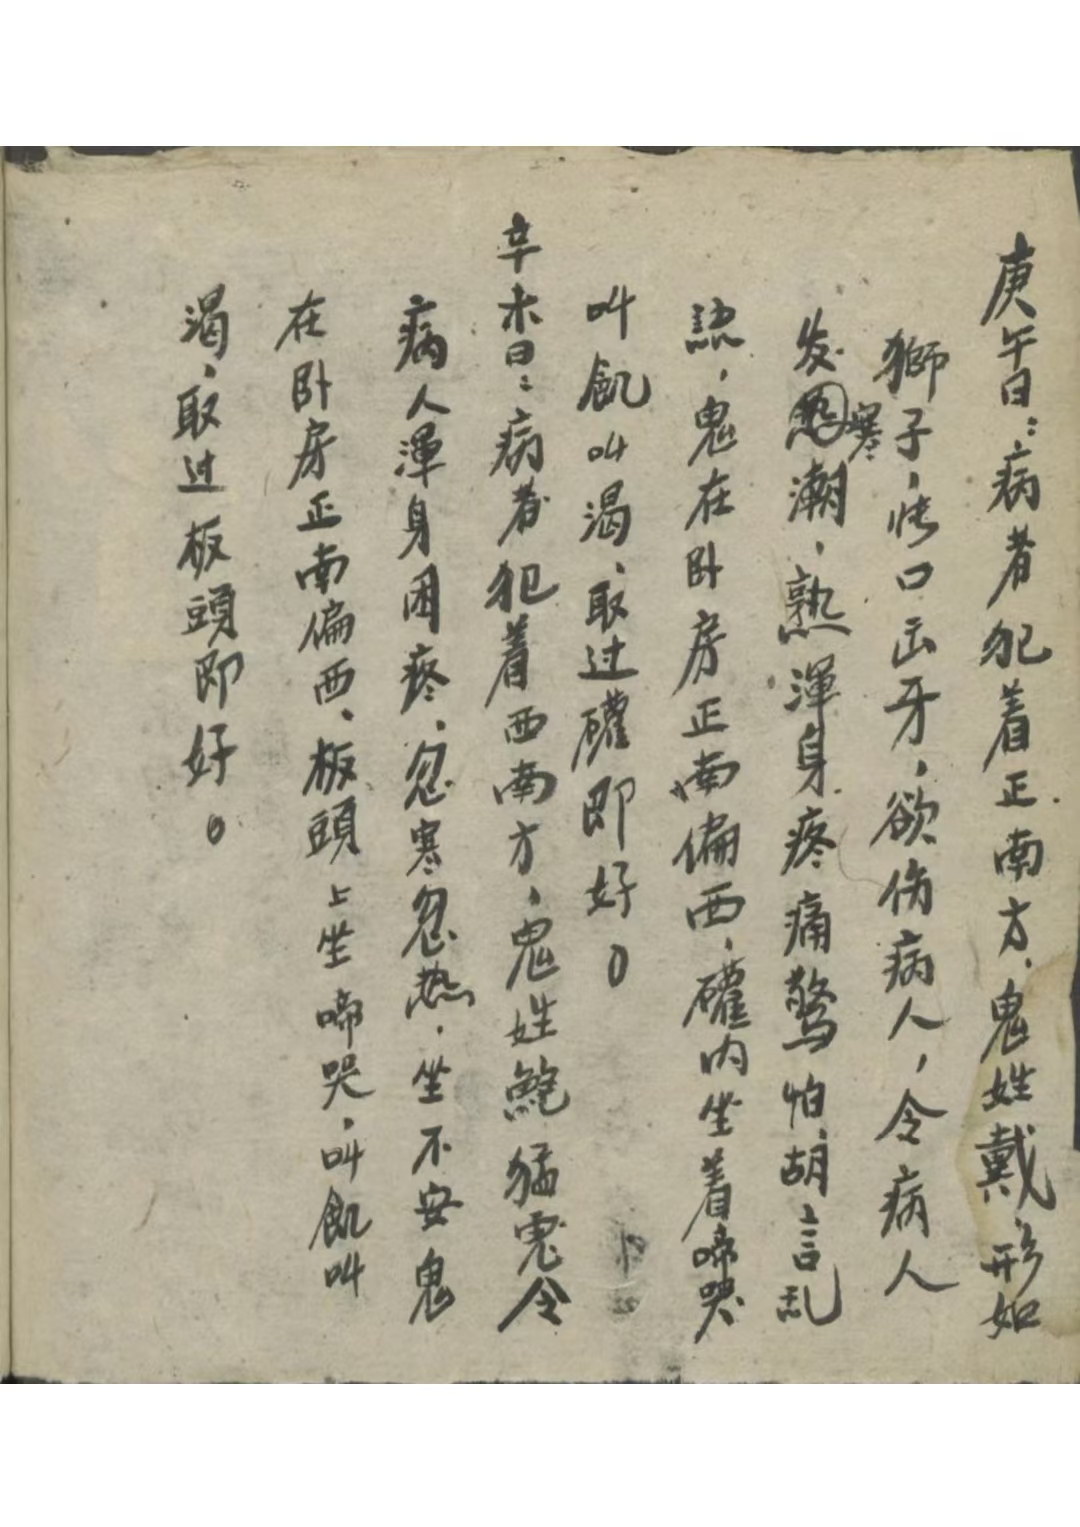 庚午日:病者犯着正南方、鬼姓戴、形如
獅子,口出牙,欲伤病人,令病人
发寒潮,熱渾身疼痛驚怕、胡言乱
語,鬼在卧房正南偏西,礶内坐着啼哭、
叫飢叫渴、取过礶即好。
辛未日:病者犯着西南方,鬼姓鮑猛鬼令
病人渾身困疼、忽寒忽热,坐不安鬼
在卧房正南偏西、板頭上坐啼哭,叫飢叫
渴、取过板頭即好。